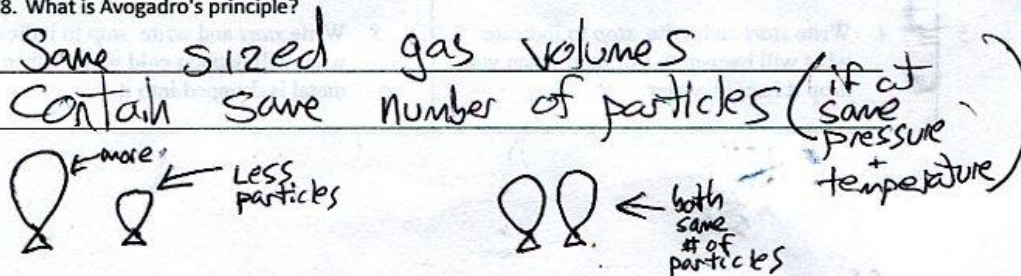 8. What is Avogadro's principle?
Same sized gas volumes
Contain same number of particles (if at
same
pressure
+
temperature)
more
Less
particles
both
same
# of
particles